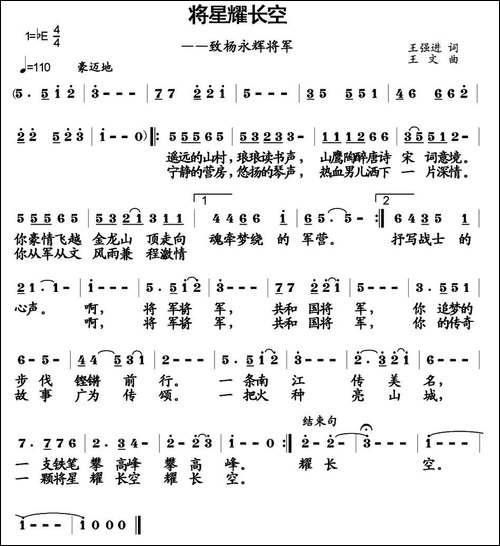 将星耀长空
——致杨永辉将军
1=♭E 4/4
王强进 词
王 文 曲
♩=110 豪迈地
(5. 5 i 2 | 3 - - - | 7 7 2 2 1 | 5 - - - | 3 5 5 5 1 | 4 6 6 6 2 |
2 2 5 2 3 | 1 - - 0 ) ‖: 5 5 5 6 5 | 5 3 2 3 5 | 1 1 1 2 6 6 | 3 5 5 1 2 - |
遥远的山村，琅琅读书声， 山鹰陶醉唐诗 宋 词意境。
宁静的营房，悠扬的琴声， 热血男儿洒下 一 片深情。
1 2
5 5 5 6 5 | 5 5 3 2 1 3 1 1 | 4 4 6 6 i | 6 5. 5 - :‖ 6 4 3 5 5 |
你豪情飞越 金龙山 顶走向 魂牵梦绕 的 军营。 抒写战士 的
你从军从文 风雨兼 程激情
2 1. 1 - | i - - - | 5. 5 i 2 | 3 - - - | 7. 7 2 1 | 5 - - - | 3. 5 5 1 |
心声。 啊， 将 军将 军， 共和 国将 军， 你 追梦的
啊， 将 军将 军， 共和 国将 军， 你 的传奇
6 - 5 - | 4 4 5 3 1 | 2 - - - | 5. 5 i 2 | 3 - - - | 2. 3 2 1 | 6 - - - |
步 伐 铿锵 前 行。 一 条南 江 传 美 名，
故 事 广为 传 颂。 一 把火 种 亮 山 城，
结束句
7. 7 7 6 | 2. 3 4 | 2 - 2 3 | i - - 0 :‖ 2 - 2 - | 3 - - - | i - - - |
一 支铁笔 攀 高峰 攀 高 峰。 耀 长 空。
一 颗将星 耀 长空 耀 长 空。
i - - - | i 0 0 0 ‖